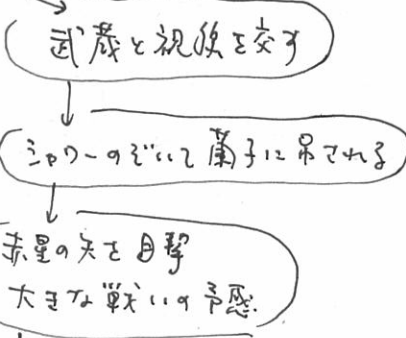 武蔵と視線を交す
シャワーのぞいて蘭子に吊される
赤星の矢を目撃
大きな戦いの予感